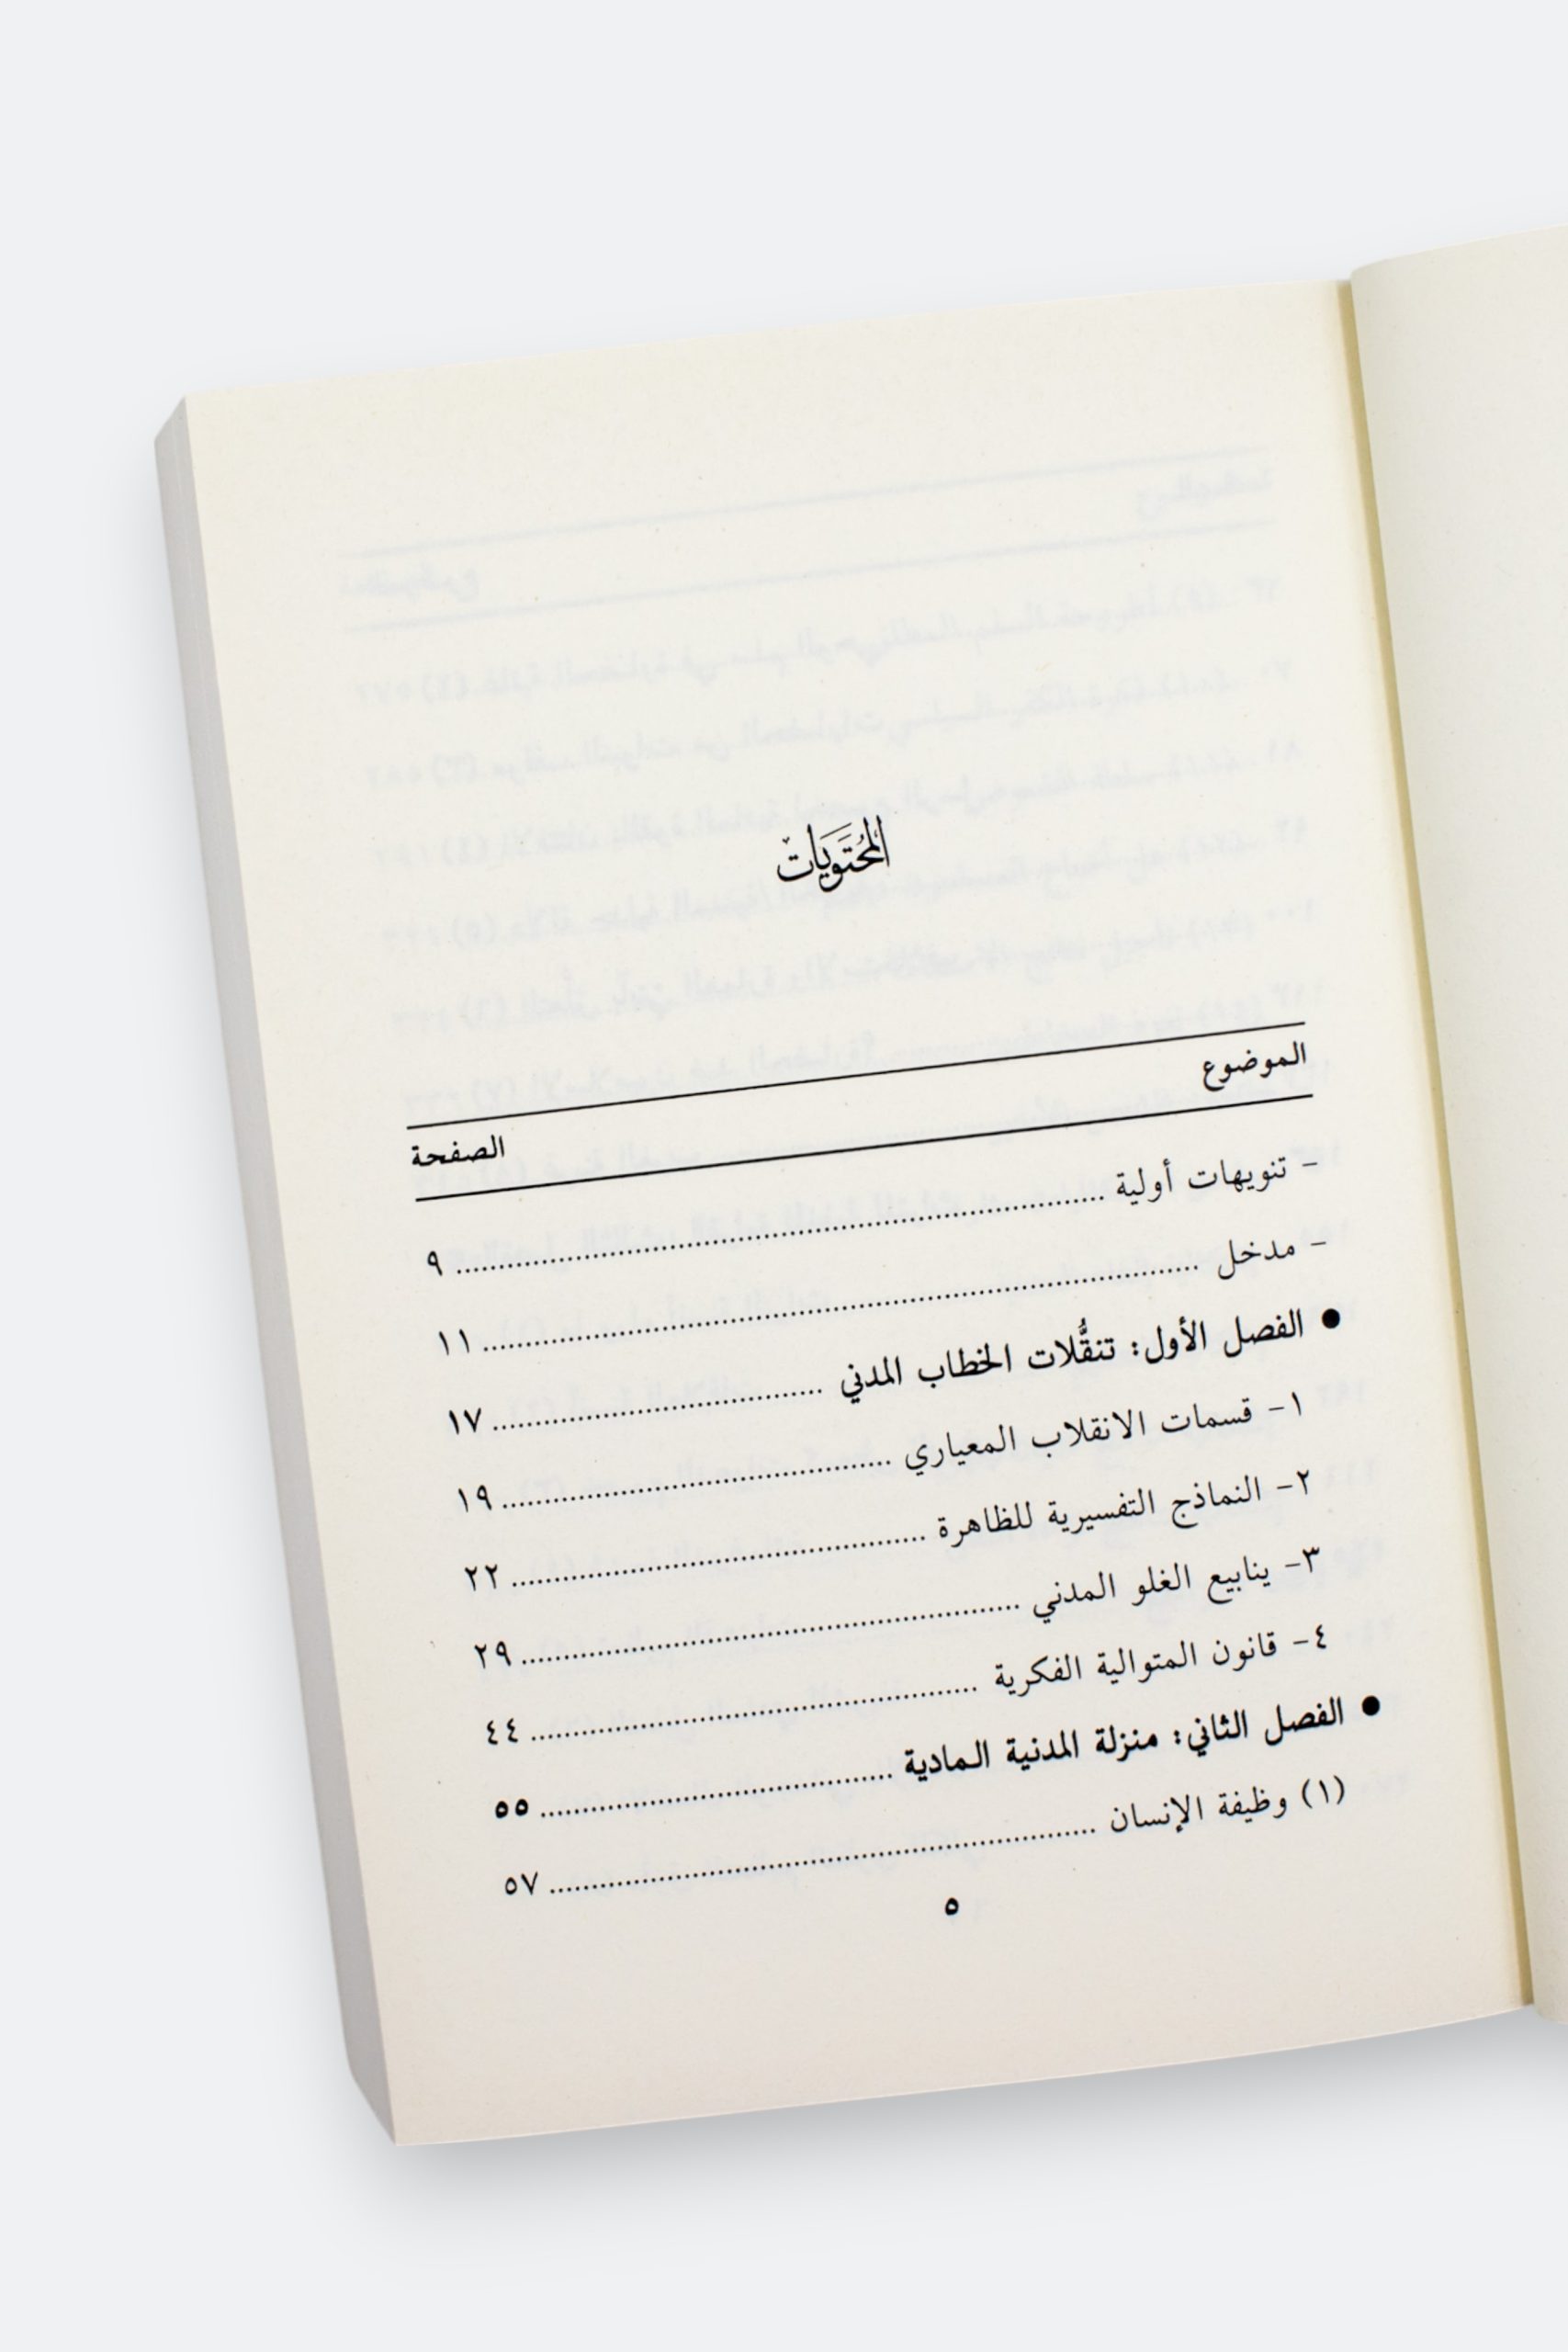 المُحْتَوَيَات
الموضوع الصفحة
- تنويهات أولية ........ ٩
- مدخل ........ ١١
● الفصل الأول: تنقُّلات الخطاب المدني ........ ١٧
١- قسمات الانقلاب المعياري ........ ١٩
٢- النماذج التفسيرية للظاهرة ........ ٢٢
٣- ينابيع الغلو المدني ........ ٢٩
٤- قانون المتوالية الفكرية ........ ٤٤
● الفصل الثاني: منزلة المدنية المادية ........ ٥٥
(١) وظيفة الإنسان ........ ٥٧
٥